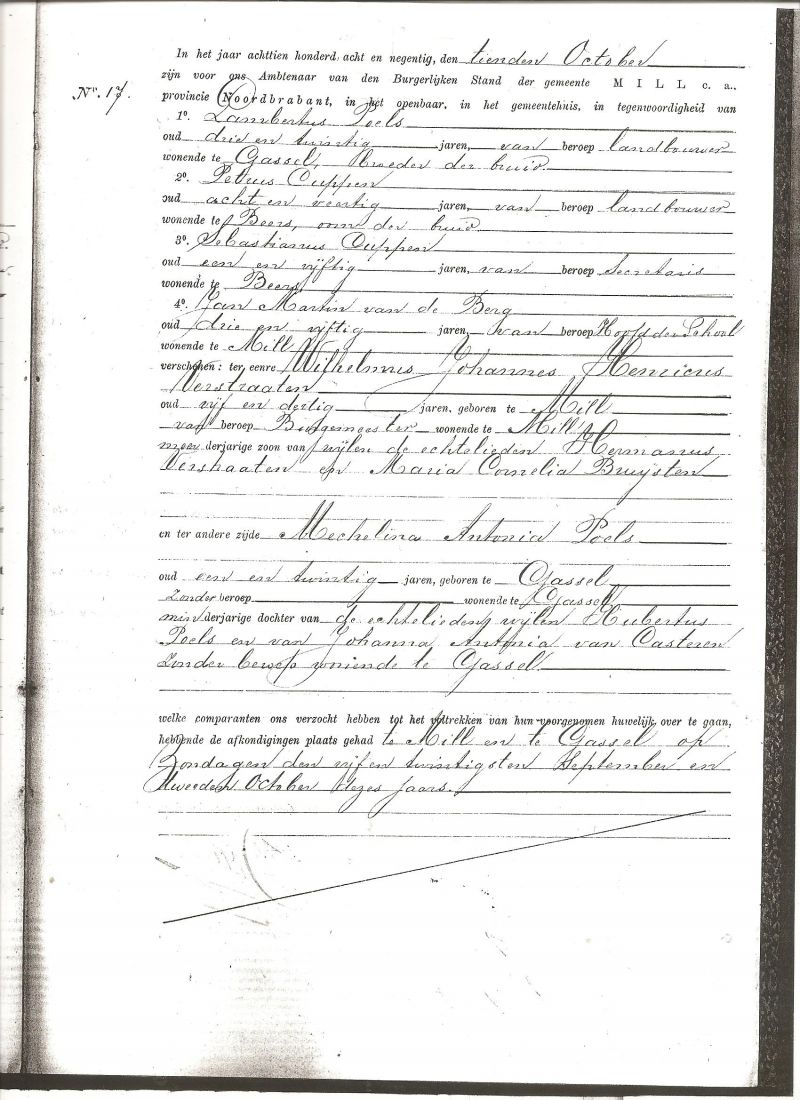 In het jaar achttien honderd acht en negentig, den tienden October
zijn voor ons Ambtenaar van den Burgerlijken Stand der gemeente MILL c. a.,
No. 17.
provincie Noordbrabant, in het openbaar, in het gemeentehuis, in tegenwoordigheid van
1o. Lambertus Poels
oud drie en twintig jaren, van beroep landbouwer
wonende te Gassel, broeder der bruid.
2o. Petrus Cuppen
oud acht en veertig jaren, van beroep landbouwer
wonende te Beers, oom der bruid
3o. Sebastianus Cuppen
oud een en vijftig jaren, van beroep Secretaris
wonende te Beers
4o. Jan Martin van de Berg
oud drie en vijftig jaren, van beroep Hoofd der School
wonende te Mill
verschenen: ter eenre Wilhelmus Johannes Henricus
Verstraaten
oud vijf en dertig jaren, geboren te Mill
van beroep Burgemeester wonende te Mill,
meerderjarige zoon van wijlen de echtelieden Hermanus
Verstraaten en Maria Cornelia Bruijsten
en ter andere zijde Mechelina Antonia Poels
oud een en twintig jaren, geboren te Gassel
Zonder beroep wonende te Gassel
minderjarige dochter van de echtelieden wijlen Hubertus
Poels en van Johanna Antonia van Casteren
zonder beroep wonende te Gassel
welke comparanten ons verzocht hebben tot het voltrekken van hun voorgenomen huwelijk over te gaan,
hebbende de afkondigingen plaats gehad te Mill en te Gassel op
Zondagen den vijf en twintigsten September en
tweeden October dezes jaars.